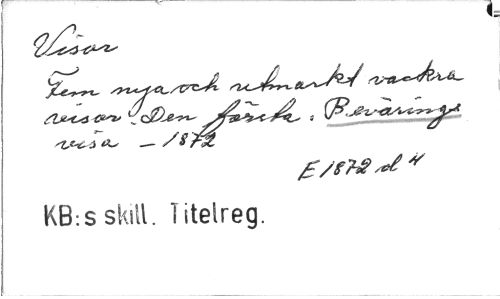 Visor
Fem nya och utmärkt vackra
visor. Den första. Bevärings
visa – 1872
E 1872 d 4
KB:s skill. Titelreg.